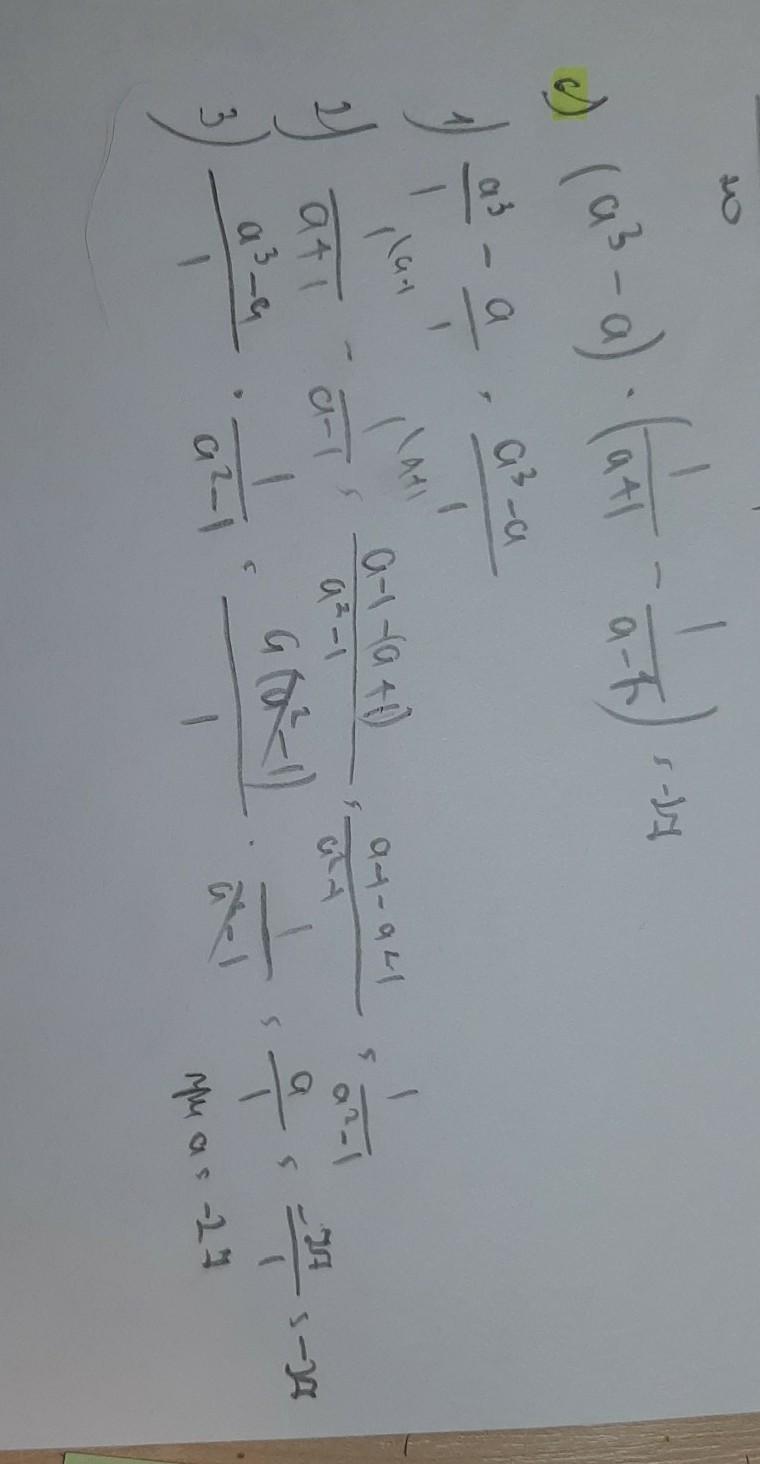 го
с) (a³ - a) · (1/(a+1) - 1/(a-1)) = -27
1) a³/1 - a/1 = (a³-a)/1
2) 1\a-1/(a+1) - 1\a+1/(a-1) = (a-1-(a+1))/(a²-1) = (a-1-a+1)/(a²-1) = 1/(a²-1)
3) (a³-a)/1 · 1/(a²-1) = a(a²-1)/1 · 1/(a²-1) = a/1 = -27/1 = -27
при a = -27